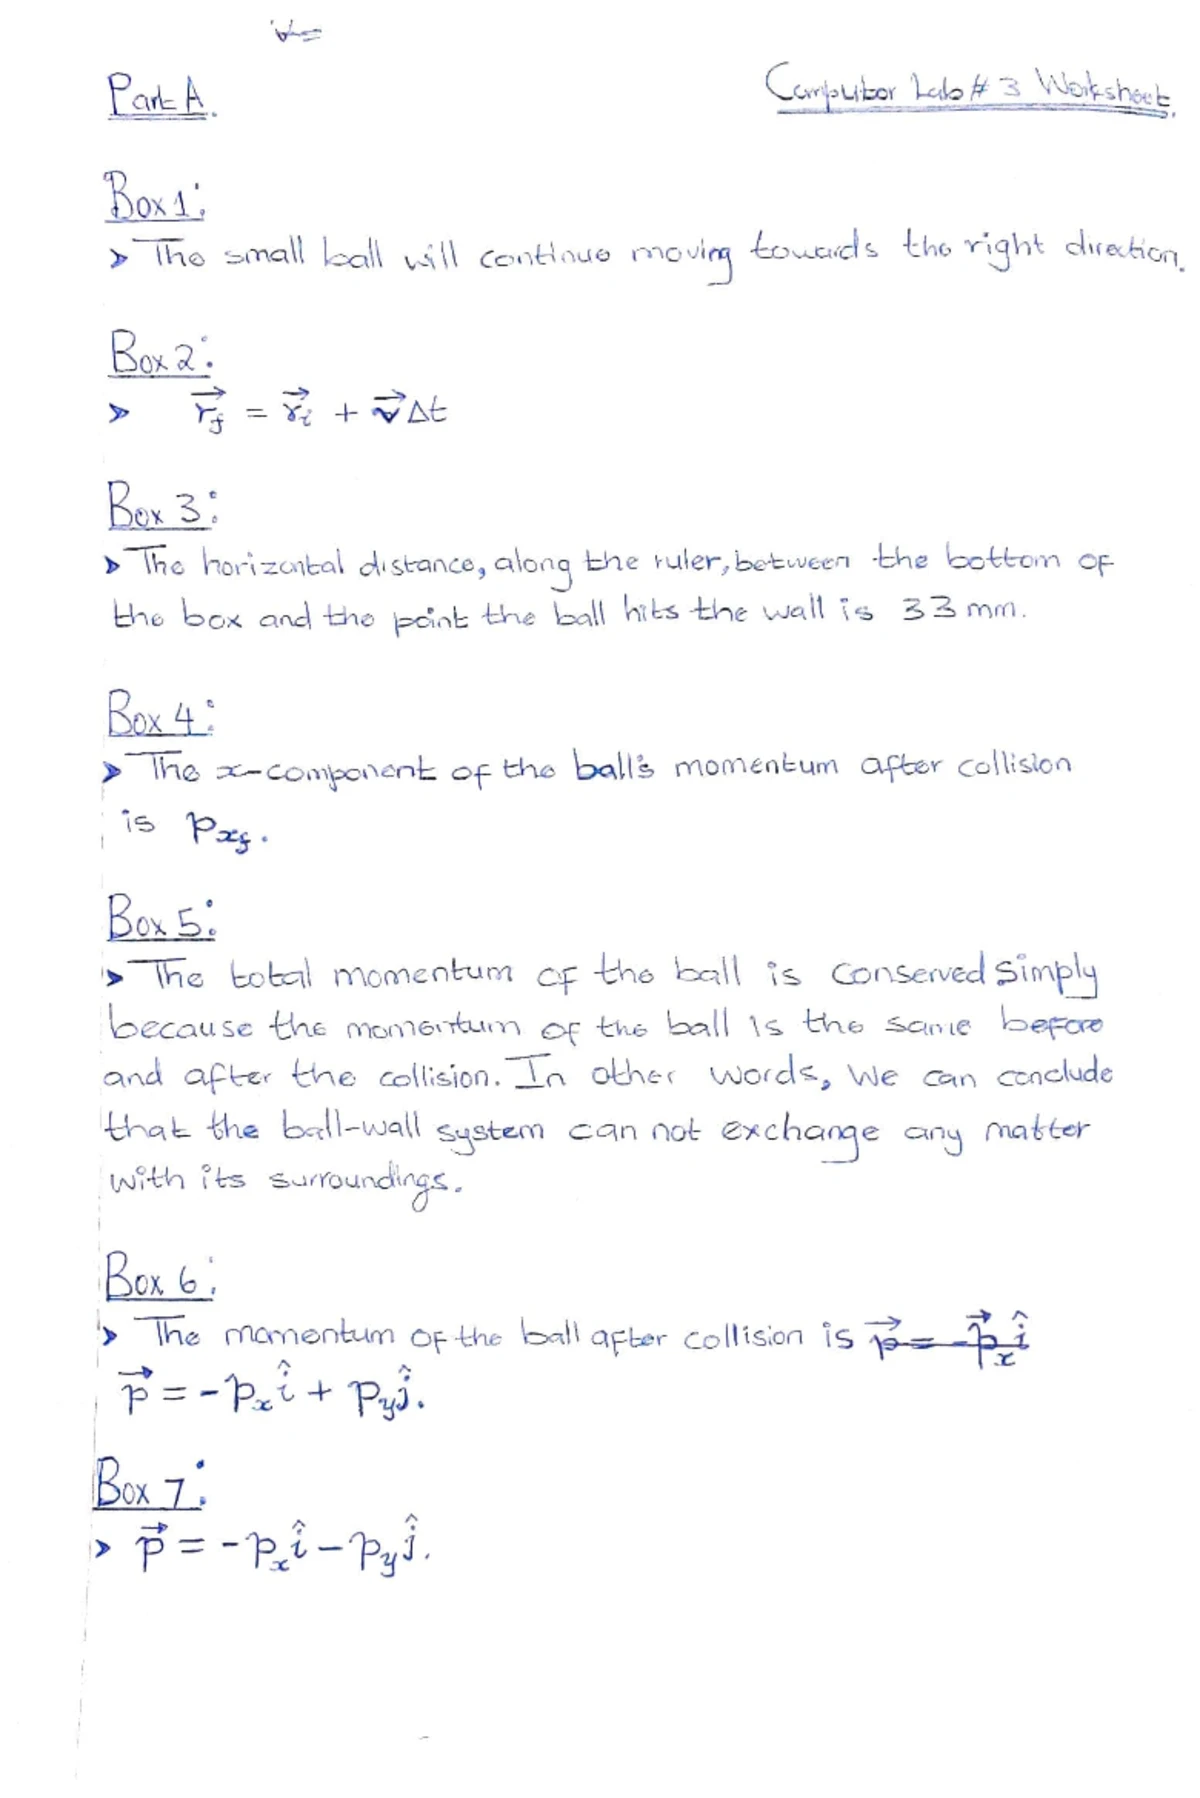 V=
Part A.
Computer Lab # 3 Worksheet.
Box 1:
➤ The small ball will continue moving towards the right direction.
Box 2:
➤ \vec{r}_f = \vec{r}_i + \vec{v}Δt
Box 3:
➤ The horizontal distance, along the ruler, between the bottom of
the box and the point the ball hits the wall is 33 mm.
Box 4:
➤ The x-component of the ball's momentum after collision
is p_{xf}.
Box 5:
➤ The total momentum of the ball is conserved simply
because the momentum of the ball is the same before
and after the collision. In other words, we can conclude
that the ball-wall system can not exchange any matter
with its surroundings.
Box 6:
➤ The momentum of the ball after collision is \vec{p} = -\vec{p}_x î
\vec{p} = -p_x î + p_y ĵ.
Box 7:
➤ \vec{p} = -p_x î - p_y ĵ.